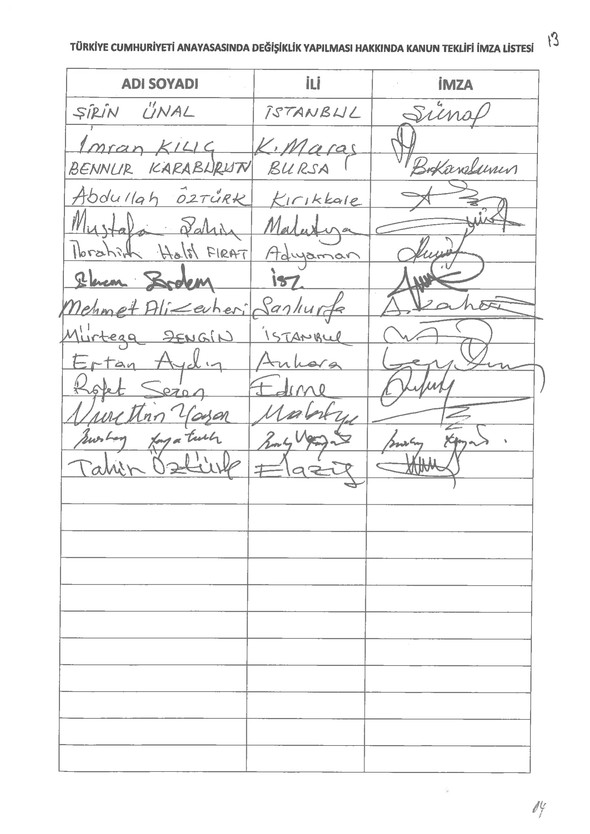 13
TÜRKİYE CUMHURİYETİ ANAYASASINDA DEĞİŞİKLİK YAPILMASI HAKKINDA KANUN TEKLİFİ İMZA LİSTESİ
ADI SOYADI İLİ İMZA
ŞİRİN ÜNAL İSTANBUL Şünal
İmran KILIÇ K.Maraş
BENNUR KARABURUN BURSA B.Karaburun
Abdullah ÖZTÜRK Kırıkkale
Mustafa Şahin Malatya
İbrahim Halil FIRAT Adıyaman
Ekrem Erdem İst.
Mehmet Ali Cevheri Şanlıurfa
Mürteza ZENGİN İSTANBUL
Ertan Aydın Ankara
Rafet Sezen Edirne
Nurettin Yaşar Malatya
Tahir Öztürk Elazığ
14